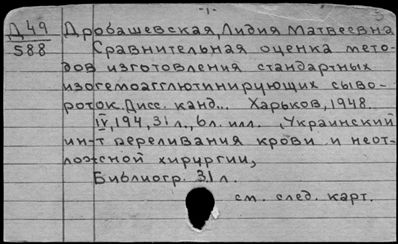 -1-
Д 49 Дробашевская, Лидия Матвеевна
588 Сравнительная оценка мето-
дов изготовления стандартных
изогемоагглютинирующих сыво-
роток. Дисс. канд... Харьков, 1948.
IV, 194, 31 л., 6 л. илл. Украинский
ин-т переливания крови и неот-
ложной хирургии,
Библиогр. 31 л.
см. след. карт.